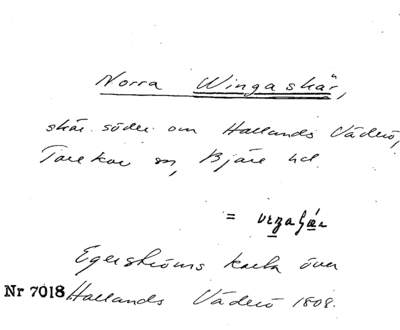 Norra Wingaskär,
skär söder om Hallands Väderö,
Torekov sn, Bjäre hd.
=
Egerströms karta över
Nr 7018 Hallands Väderö 1808.